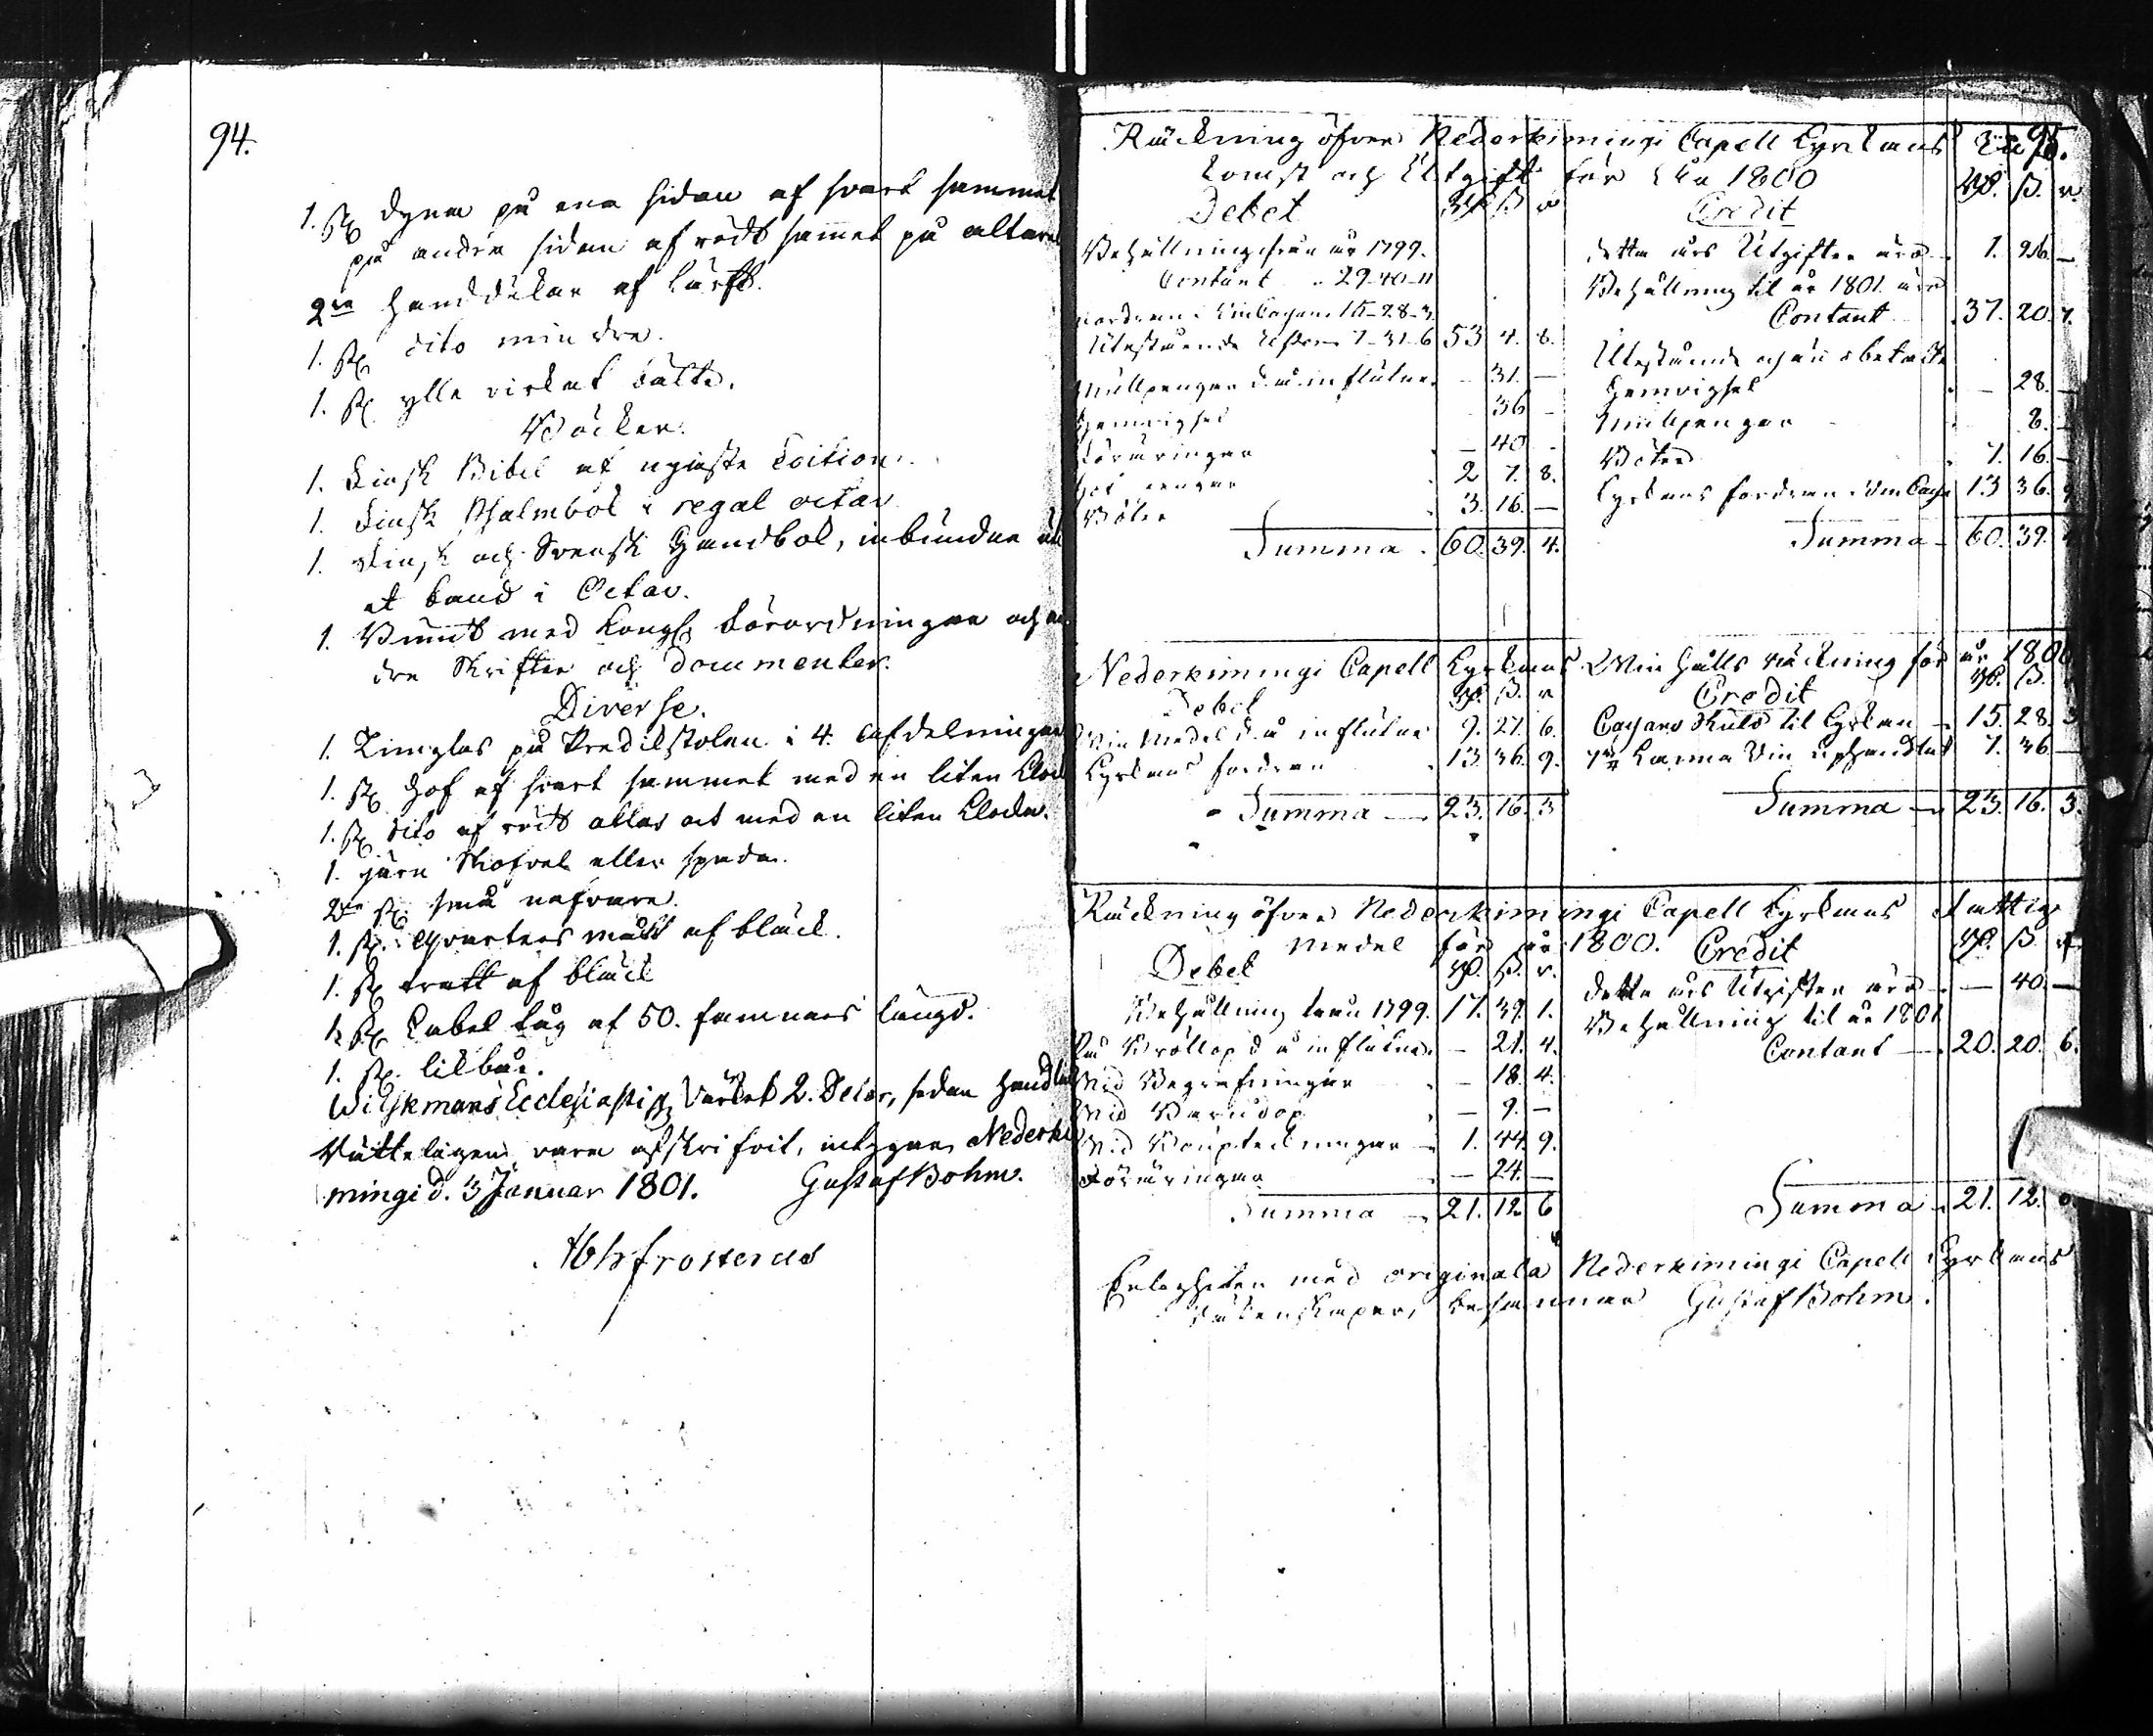 94.
1. st. dyna på ena sidan af svart sammet
på andra sidan af rödt samet på altaret
2ne handdukar af lärft.
1. st. dito mindre.
1. st. ylle virkat bälte.
Böcker.
1. Finsk Bibel af nyaste Edition.
1. Finsk Psalmbok i regal octav
1. Finsk och Svensk Handbok, inbundne uti
et band i Octav.
1. Bundt med Kongl. Förordningar och an
dra Skrifter och Documenter.
Diverse.
1. Timglas på Predikstolen i 4. afdelningar
1. st. Hof af svart sammet med en liten Klocka
1. st. dito af rödt atlas oct med en liten Klocka.
1. järn Skofvel eller spada.
2ne st. små nafvare.
1. st. Qvarters mått af bläck.
1. st. tratt af bläck
1. st. Cabel tåg af 50. famnars längd.
1. st. likbår.
Wilskmans Ecclesiastiq Värket 2. Delar, sedan
Rätteligen vara afskrifvit, intygar Nederki
mingi d. 3 Januar 1801. Gustaf Bohm.
Abh frosterus
95.
Räckning öfver Nederkimingi Capell Kyrkans In
komst och Utgift för åhr 1800
Debet Rd. ß. r. Credit Rd. ß. r.
Behållning ifrån år 1799.
Contant 29-40-11
fordran i Vin Cassan 15-28-3
Utestående 7-31-6 53 4. 8.
Mullpengar d. å. influtne - 31. —
Hemvigsel 36 -
Föräringar - 40 -
2 7. 8.
Böter 3. 16. —
Summa 60. 39. 4.
detta års Utgifter äro 1. 26. —
Behållning til år 1801 äro
Contant 37. 20. 7.
Utestående och än obetalte
Hemvigsel - 28. —
Mullpengar 8. —
Böter 7. 16. —
Kyrkans fordran i Vin Cassa 13 36. 9
Summa 60. 39.
Nederkimingi Capell Kyrkans Vinhålls räckning för år 1800
Debet Rd. ß. r. Credit Rd. ß.
Vin Medel d. å influtne 9. 27. 6.
Kyrkans fordran 13. 36. 9.
Summa 23. 16. 3
Cassans Skuld til Kyrkan 15. 28. 3
7 Kanna Vin uphandlat 7. 36. —
Summa 23. 16. 3.
Räckning öfver Nederkimingi Capell Kyrkans Fattig
medel för år 1800.
Debet Rd. ß. r. Credit Rd. ß. r.
Behållning från 1799. 17. 39. 1.
På Bröllop d å influtne - 21. 4.
Vid Begrafningar - 18. 4.
Vid Barndop — 9. —
Vid Bouptekningar 1. 44. 9.
Föräringar — 24. —
Summa 21. 12. 6
detta års Utgifter äro — 40. —
Behållning til år 1801
Contant 20. 20. 6.
Summa 21. 12.
Enlogheten med originala Nederkimingi Capell Kyrkans
Räkenskaper, besannar Gustaf Bohm.